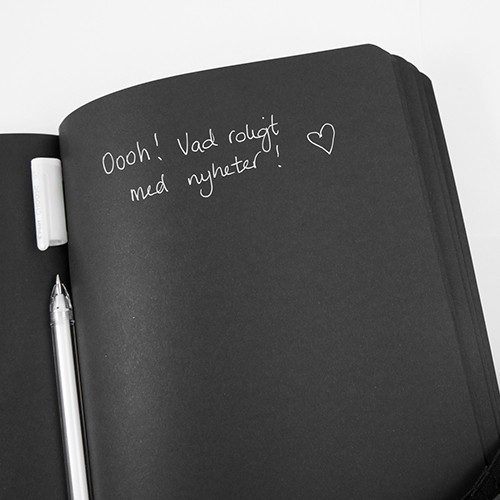 Oooh! Vad roligt
med nyheter!